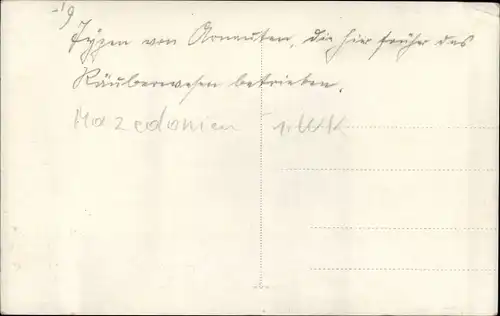 19
Typen von Arnauten, die hier früher das
Räuberwesen betrieben.
Mazedonien 1. WK